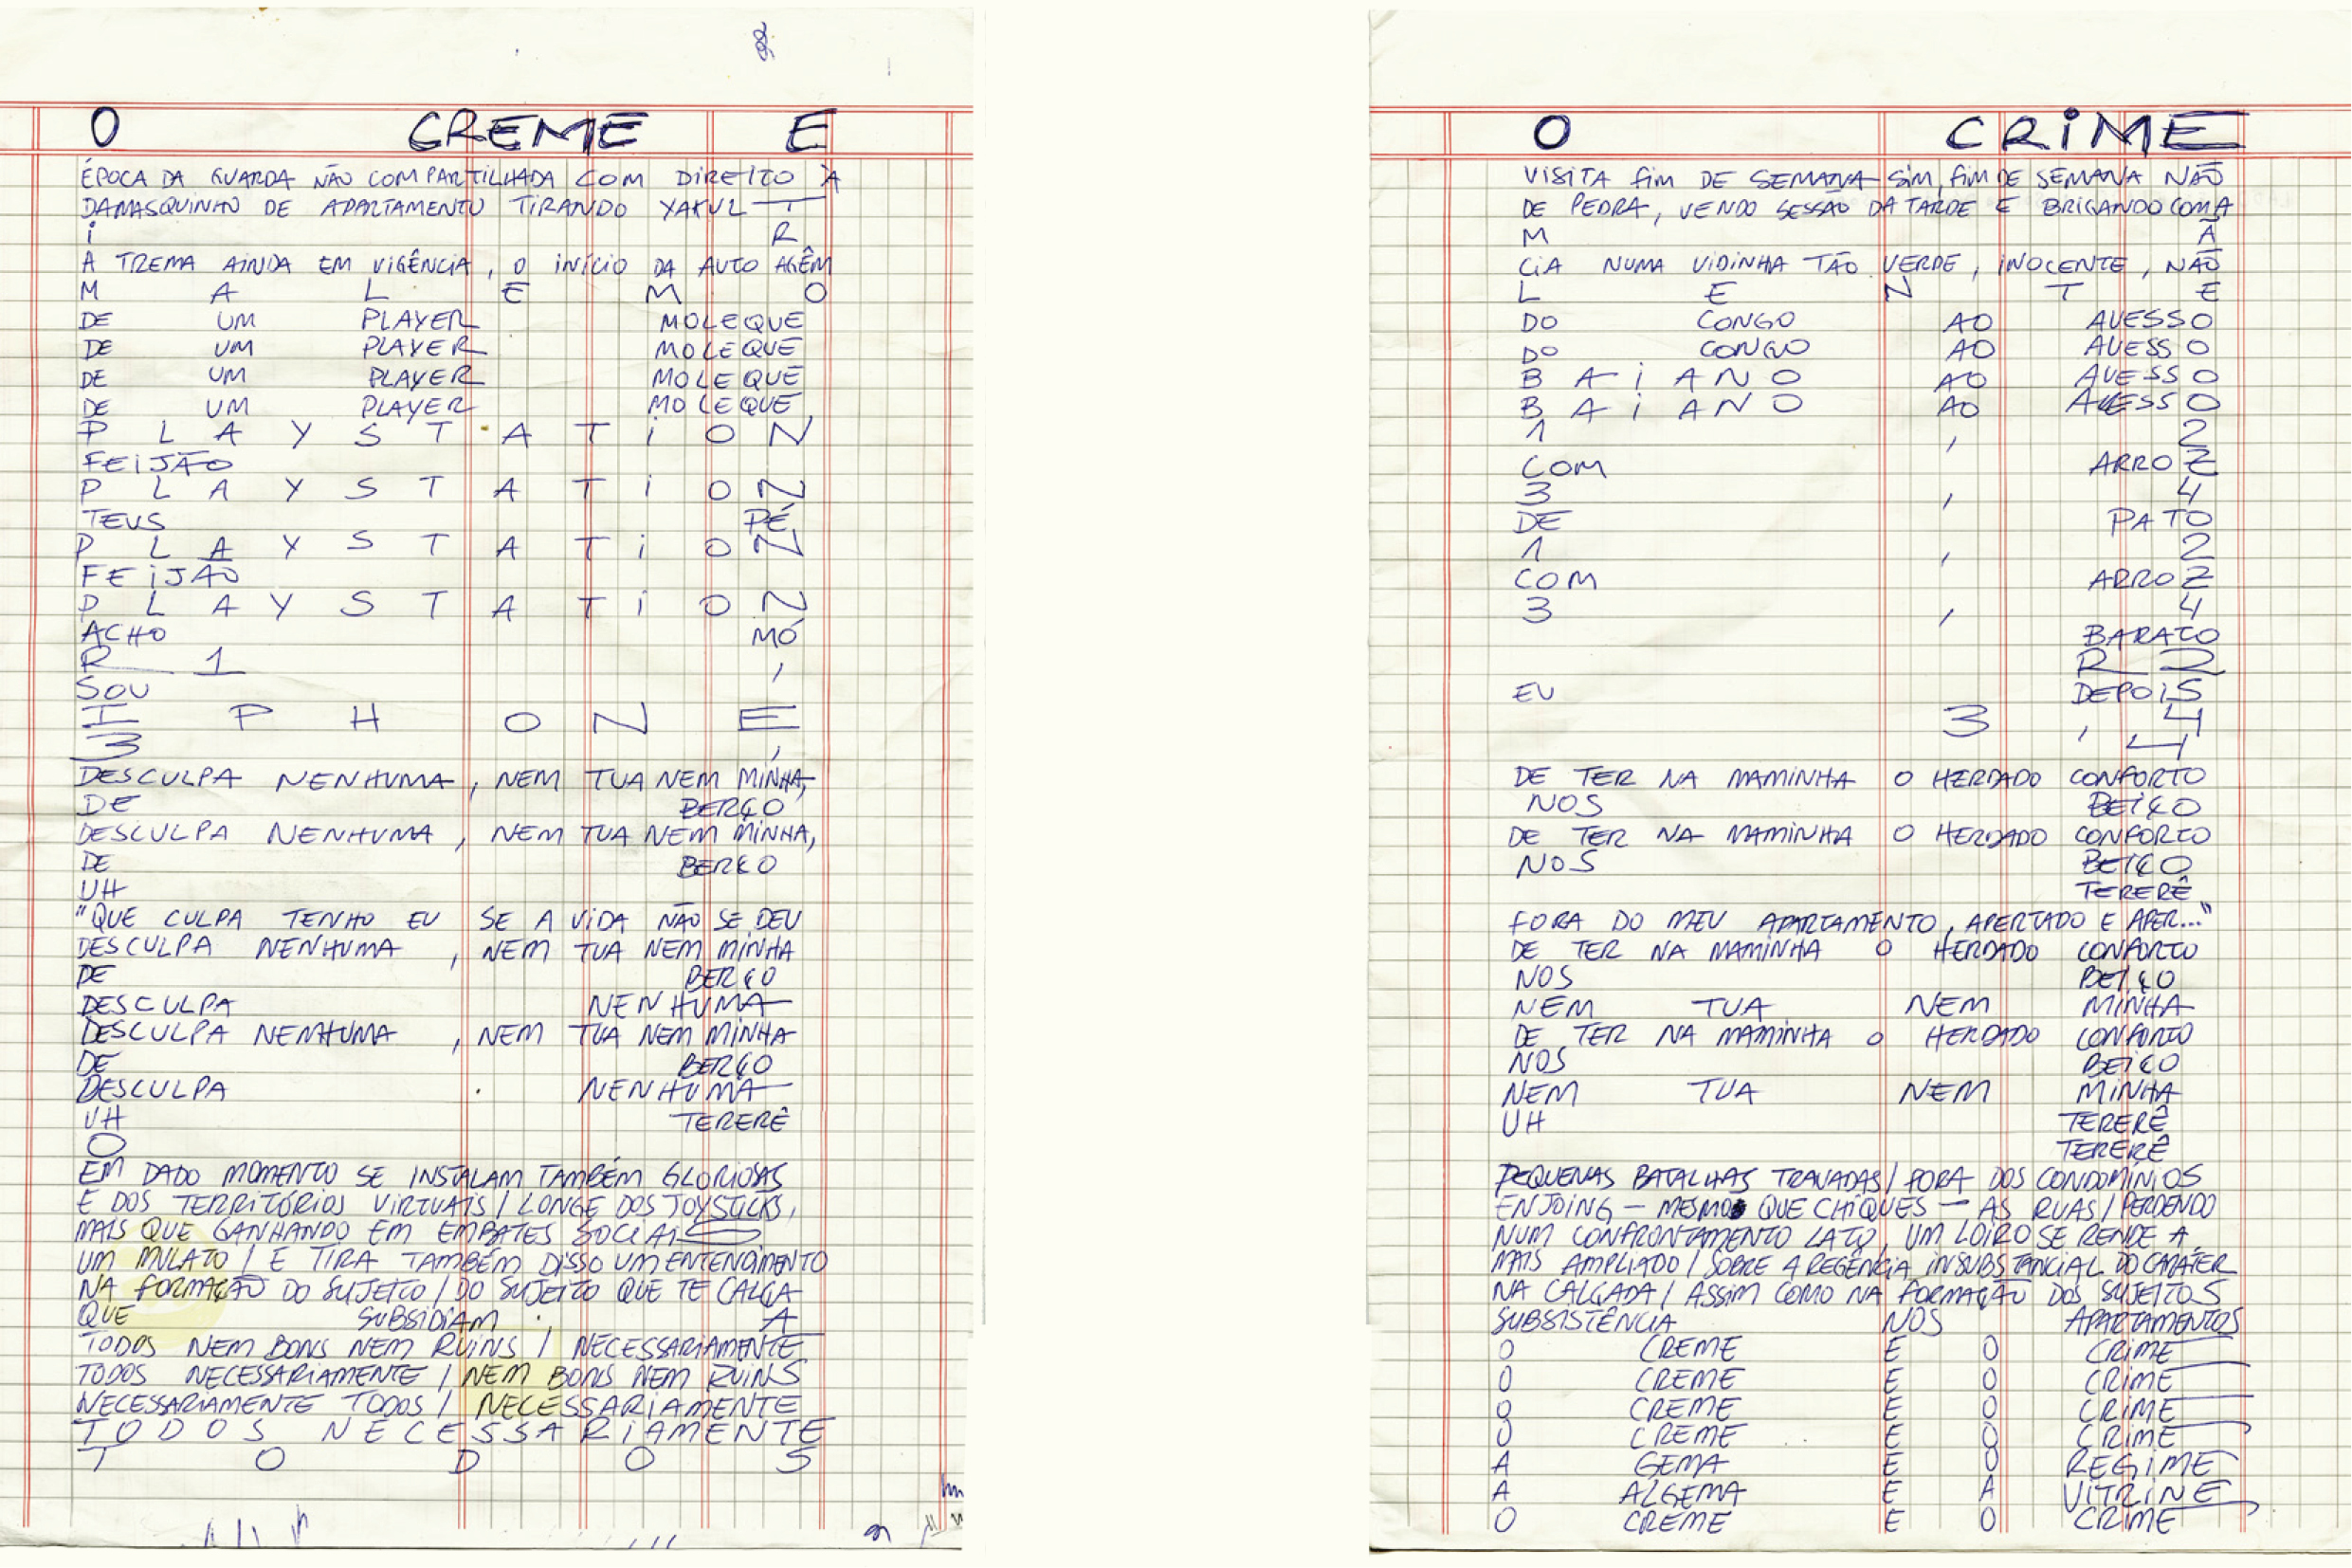 O CREME E
ÉPOCA DA GUARDA NÃO COMPARTILHADA COM DIREITO À
DAMASQUINHO DE APARTAMENTO TIRANDO YAKULT
I R
A TREMA AINDA EM VIGÊNCIA, O INÍCIO DA AUTO AGÊN
M A L E M O
DE UM PLAYER MOLEQUE
DE UM PLAYER MOLEQUE
DE UM PLAYER MOLEQUE
DE UM PLAYER MOLEQUE
P L A Y S T A T I O N
FEIJÃO
P L A Y S T A T I O N
TEUS PÉ,
P L A Y S T A T I O N
FEIJÃO
P L A Y S T A T I O N
ACHO MÓ,
R 1 ,
SOU
I P H O N E
3 ,
DESCULPA NENHUMA, NEM TUA NEM MINHA,
DE BERÇO
DESCULPA NENHUMA, NEM TUA NEM MINHA,
DE BERÇO
UH
"QUE CULPA TENHO EU SE A VIDA NÃO SE DEU
DESCULPA NENHUMA, NEM TUA NEM MINHA
DE BERÇO
DESCULPA NENHUMA
DESCULPA NENHUMA, NEM TUA NEM MINHA
DE BERÇO
DESCULPA NENHUMA
UH TERERÊ
O
EM DADO MOMENTO SE INSTALAM TAMBÉM GLORIOSAS
E DOS TERRITÓRIOS VIRTUAIS / LONGE DOS JOYSTICKS,
MAIS QUE GANHANDO EM EMBATES SOCIAIS
UM MULATO / E TIRA TAMBÉM DISSO UM ENTENDIMENTO
NA FORMAÇÃO DO SUJEITO / DO SUJEITO QUE TE CALÇA
QUE SUBSIDIAM A
TODOS NEM BONS NEM RUINS / NECESSARIAMENTE
TODOS NECESSARIAMENTE / NEM BONS NEM RUINS
NECESSARIAMENTE TODOS / NECESSARIAMENTE
TODOS NECESSARIAMENTE
T O D O S
O CRIME
VISITA FIM DE SEMANA SIM, FIM DE SEMANA NÃO
DE PEDRA, VENDO SESSÃO DA TARDE E BRIGANDO COM A
M Ã
CIA NUMA VIDINHA TÃO VERDE, INOCENTE, NÃO
L E N T E
DO CONGO AO AVESSO
DO CONGO AO AVESSO
B A I A N O AO AVESSO
B A I A N O AO AVESSO
1 , 2
COM ARROZ
3 , 4
DE PATO
1 , 2
COM ARROZ
3 , 4
BARATO
R 2
EU DEPOIS
3 , 4
4
DE TER NA MAMINHA O HERDADO CONFORTO
NOS BEIÇO
DE TER NA MAMINHA O HERDADO CONFORTO
NOS BEIÇO
TERERÊ
FORA DO MEU APARTAMENTO, APERTADO E APER..."
DE TER NA MAMINHA O HERDADO CONFORTO
NOS BEIÇO
NEM TUA NEM MINHA
DE TER NA MAMINHA O HERDADO CONFORTO
NOS BEIÇO
NEM TUA NEM MINHA
UH TERERÊ
TERERÊ
PEQUENAS BATALHAS TRAVADAS / FORA DOS CONDOMÍNIOS
ENJOING – MESMO QUE CHIQUES – AS RUAS / PERDENDO
NUM CONFRONTAMENTO LATO, UM LOIRO SE RENDE A
MAIS AMPLIADO / SOBRE A REGÊNCIA INSUBSTANCIAL DO CARÁTER
NA CALÇADA / ASSIM COMO NA FORMAÇÃO DOS SUJEITOS
SUBSISTÊNCIA NOS APARTAMENTOS
O CREME E O CRIME
O CREME E O CRIME
O CREME E O CRIME
O CREME E O CRIME
A GEMA E O REGIME
A ALGEMA E A VITRINE
O CREME E O CRIME